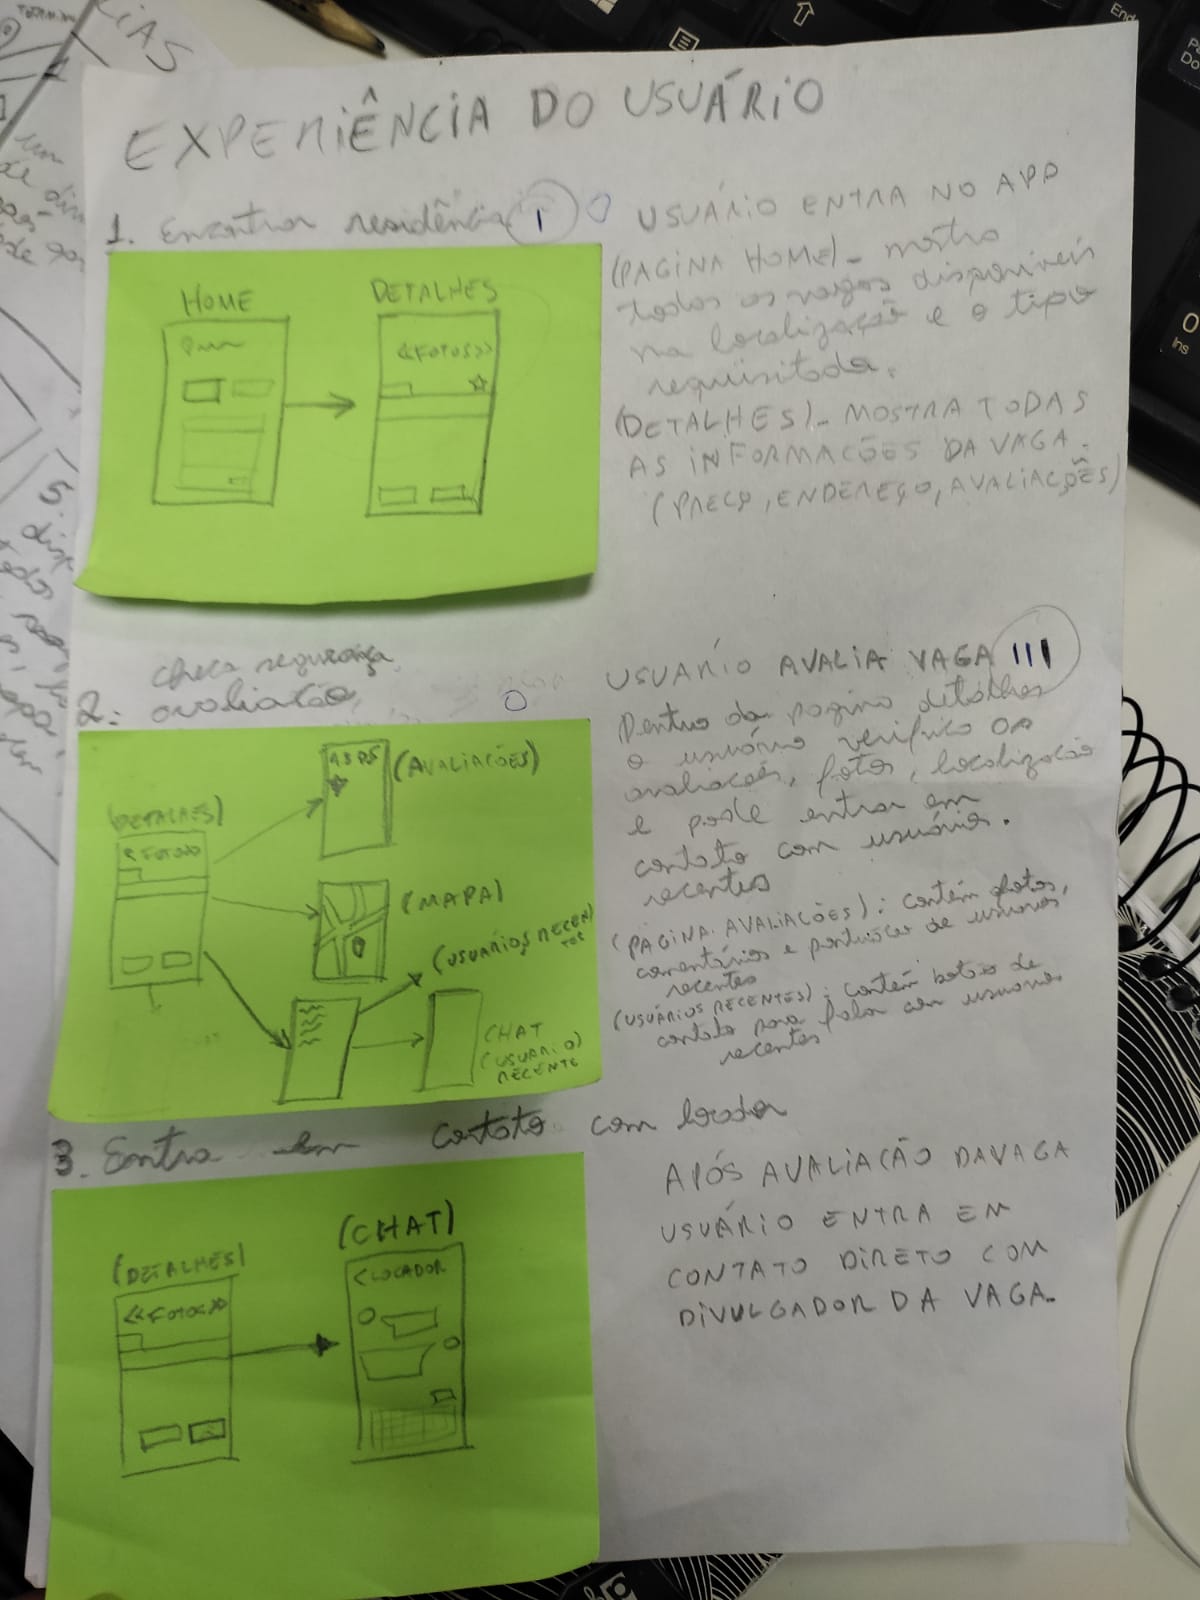 EXPERIÊNCIA DO USUÁRIO
1. Encontrar residência I
HOME
DETALHES
<<FOTOS>>
USUÁRIO ENTRA NO APP
(PAGINA HOME) - mostra
todas as vagas disponíveis
na localização e o tipo
requisitada.
(DETALHES) - MOSTRA TODAS
AS INFORMAÇÕES DA VAGA.
(PREÇO, ENDEREÇO, AVALIAÇÕES)
checa segurança
2. avaliação
(DETALHES)
(AVALIAÇÕES)
(MAPA)
(USUÁRIOS RECEN
TES
CHAT
(USUARIO)
RECENTE
USUARÍO AVALIA VAGA III
Dentro da pagina detalhes
o usuário verifica as
avaliações, fotos, localização
e pode entrar em
contato com usuários
recentes
(PÁGINA AVALIAÇÕES): contém photos,
comentários e pontuação de usuarios
recentes
(USUÁRIOS RECENTES): contém botão de
contato para falar com usuarios
recentes
3. Entra em contato com locador
(DETALHES)
<<FOTOS>>
(CHAT)
<LOCADOR
APÓS AVALIAÇÃO DA VAGA
USUÁRIO ENTRA EM
CONTATO DIRETO COM
DIVULGADOR DA VAGA.
IAS
5.
End
Ins